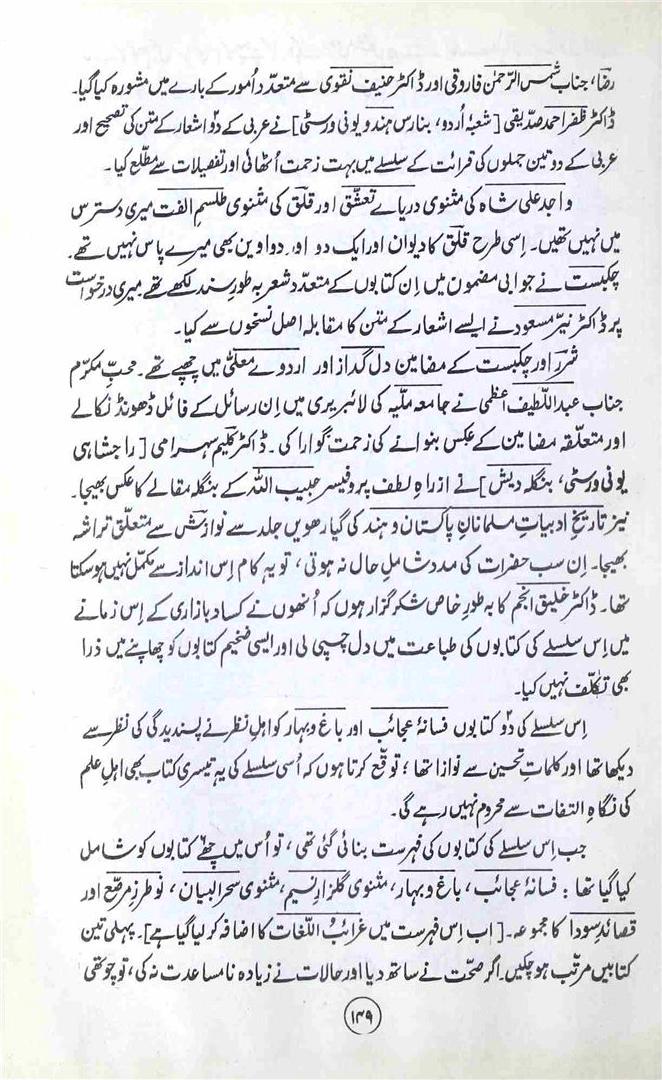 رضا، جناب شمس الرّحمٰن فاروقی اور ڈاکٹر حنیف نقوی سے متعدّد اُمور کے بارے میں مشورہ کیا گیا۔
ڈاکٹر ظفر احمد صدیقی [شعبۂ اُردو، بنارس ہندو یونی ورسٹی] نے عربی کے دو اشعار کے متن کی تصحیح اور
عربی کے دو تین جملوں کی قرائت کے سلسلے میں بہت زحمت اُٹھائی اور تفصیلات سے مطّلع کیا۔
واجد علی شاہ کی مثنوی دریاے تعشّق اور قلق کی مثنوی طلسمِ الفت میری دسترس
میں نہیں تھیں۔ اِسی طرح قلق کا دیوان اور ایک دو اور دواوین بھی میرے پاس نہیں تھے۔
چکبست نے جوابی مضمون میں اِن کتابوں کے متعدد شعر بہ طورِ سند لکھے تھے۔ میری درخواست
پر ڈاکٹر نیّر مسعود نے ایسے اشعار کے متن کا مقابلہ اصل نسخوں سے کیا۔
شرر اور چکبست کے مضامین دل گداز اور اردوے معلّیٰ میں چھپے تھے۔ محبِّ مکرّم
جناب عبداللطیف اعظمی نے جامعہ ملّیہ کی لائبریری میں اِن رسائل کے فائل ڈھونڈ نکالے
اور متعلّقہ مضامین کے عکس بنوانے کی زحمت گوارا کی۔ ڈاکٹر کلیم سہسرامی [راجشاہی
یونی ورسٹی، بنگلہ دیش] نے ازراہِ لطف پروفیسر حبیب اللہ کے بنگلہ مقالے کا عکس بھیجا۔
نیز تاریخِ ادبیاتِ مسلمانانِ پاکستان و ہند کی گیارھویں جلد سے نوازش سے متعلّق تراشہ
بھیجا۔ اِن سب حضرات کی مدد شاملِ حال نہ ہوتی، تو یہ کام اِس انداز سے مکمّل نہیں ہو سکتا
تھا۔ ڈاکٹر خلیق انجم کا بہ طورِ خاص شکر گزار ہوں کہ اُنھوں نے کساد بازاری کے اِس زمانے
میں اِس سلسلے کی کتابوں کی طباعت میں دل چسپی لی اور ایسی ضخیم کتابوں کو چھاپنے میں ذرا
بھی تکلّف نہیں کیا۔
اِس سلسلے کی دو کتابوں فسانۂ عجائب اور باغ و بہار کو اہلِ نظر نے پسندیدگی کی نظر سے
دیکھا تھا اور کلماتِ تحسین سے نوازا تھا؛ توقّع کرتا ہوں کہ اُسی سلسلے کی یہ تیسری کتاب بھی اہلِ علم
کی نگاہِ التفات سے محروم نہیں رہے گی۔
جب اِس سلسلے کی کتابوں کی فہرست بنائی گئی تھی، تو اُس میں چھے کتابوں کو شامل
کیا گیا تھا: فسانۂ عجائب، باغ و بہار، مثنوی گلزارِ نسیم، مثنوی سحرالبیان، نو طرزِ مرصّع اور
قصائدِ سودا کا مجموعہ۔ [اب اِس فہرست میں غرائبُ اللّغات کا اضافہ کر لیا گیا ہے]۔ پہلی تین
کتابیں مرتّب ہو چکیں۔ اگر صحّت نے ساتھ دیا اور حالات نے زیادہ نامساعدت نہ کی، تو چوتھی
۱۴۹